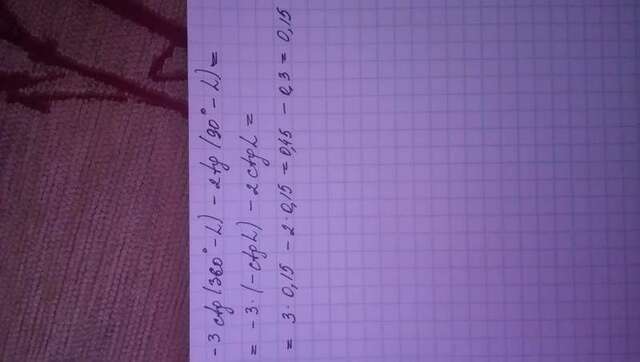 -3 ctg (360° - L) - 2tg (90° - L) =
= -3·(-ctgL) - 2 ctgL =
= 3·0,15 - 2·0,15 = 0,45 - 0,3 = 0,15